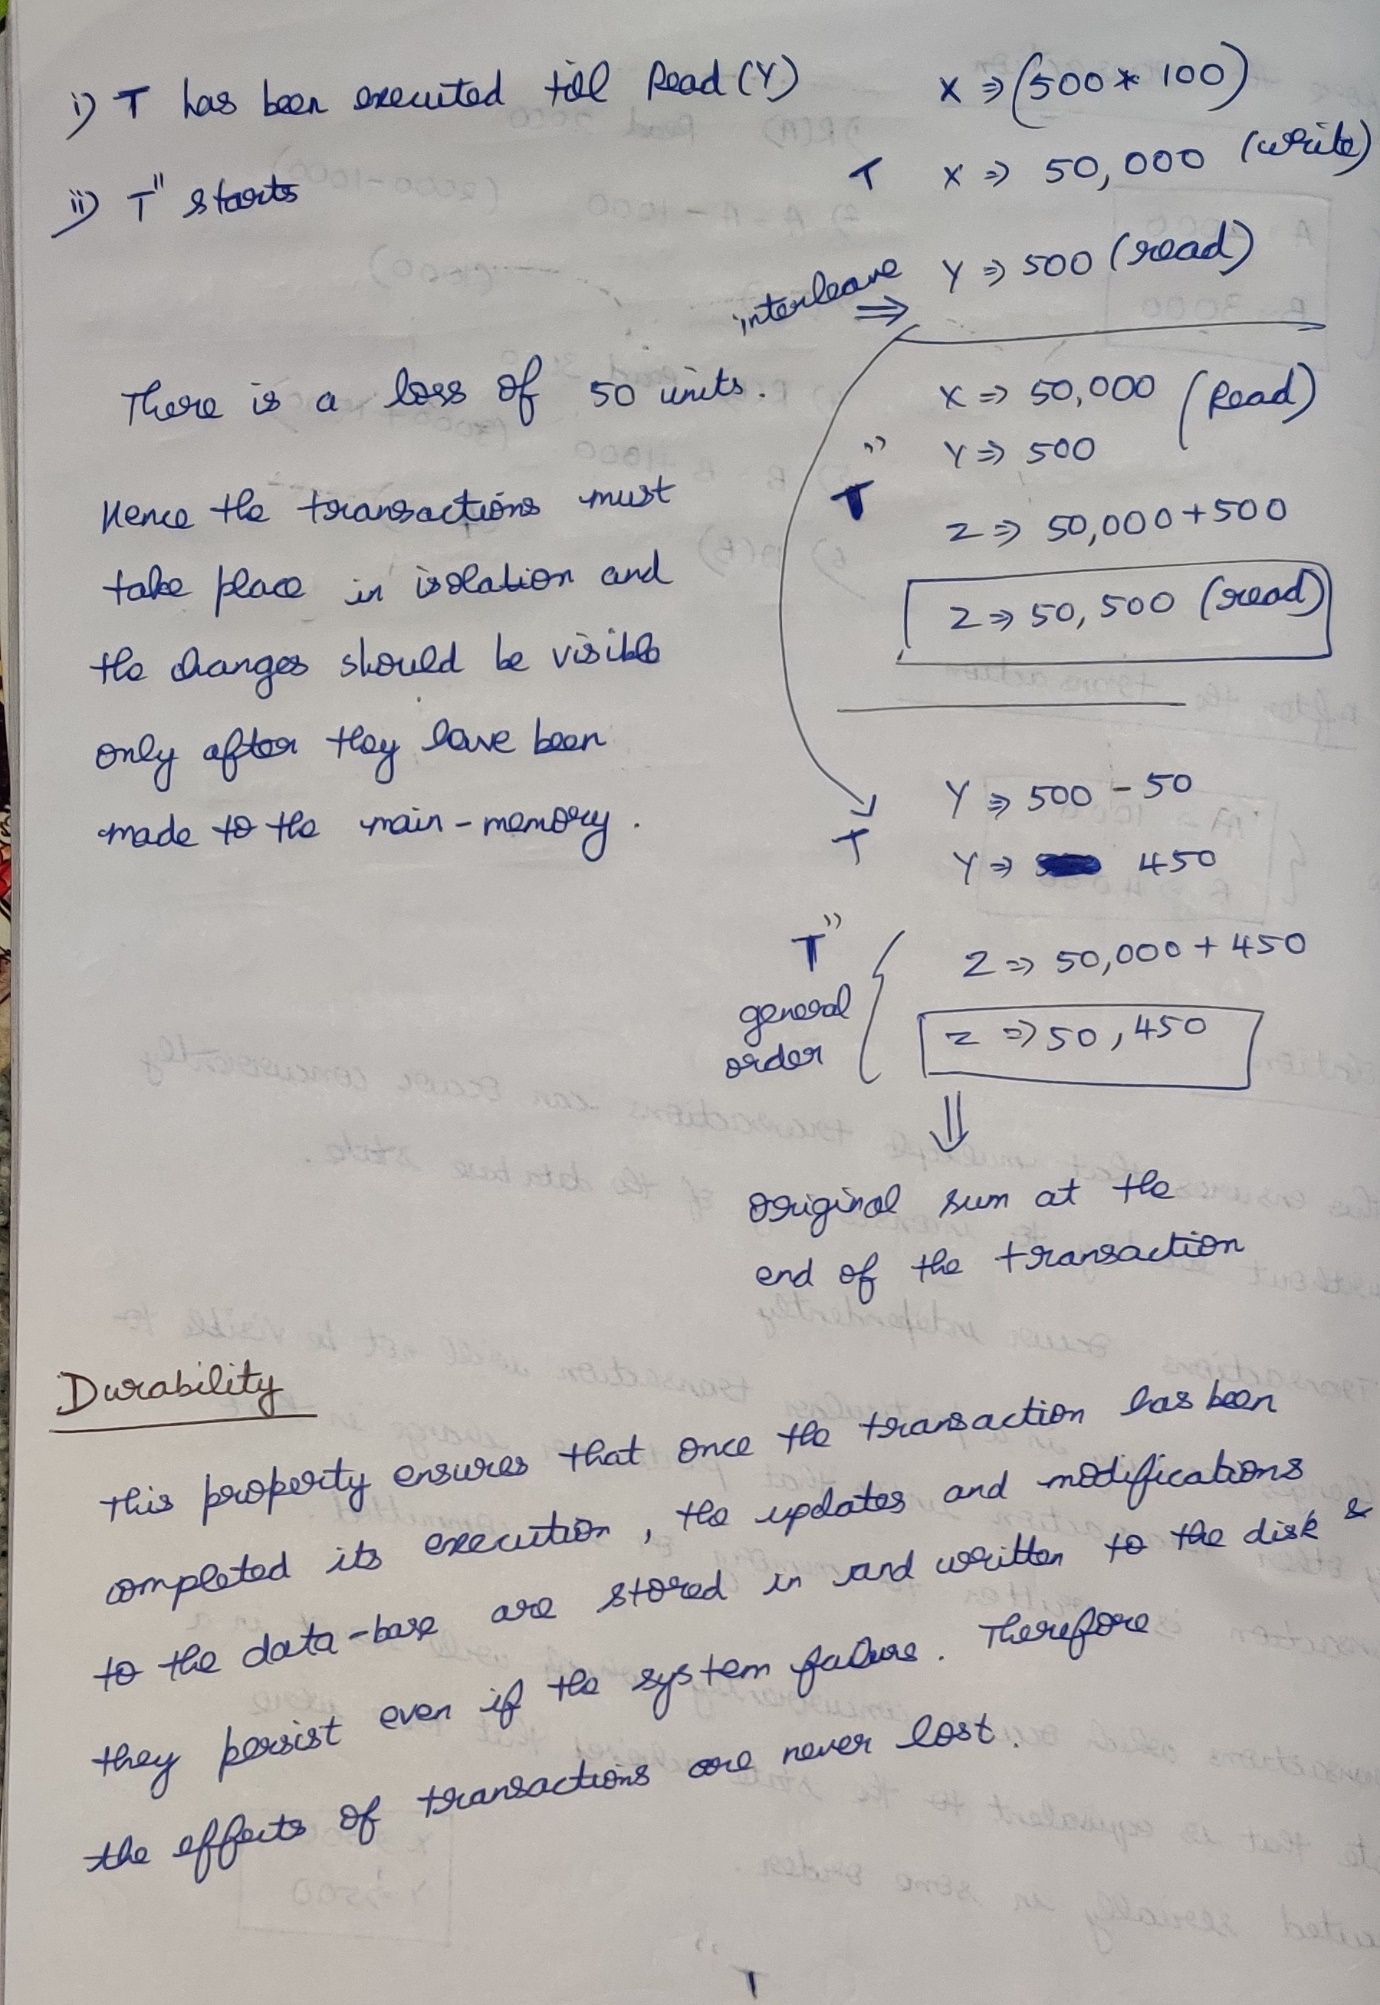 i) T has been executed till Read (Y)
ii) T" starts
There is a loss of 50 units.
Hence the transactions must
take place in isolation and
the changes should be visible
only after they have been
made to the main-memory.
X ⇒ (500 * 100)
T X ⇒ 50,000 (write)
interleave ⇒ Y ⇒ 500 (read)
X ⇒ 50,000 (Read)
T" Y ⇒ 500
Z ⇒ 50,000+500
Z ⇒ 50,500 (read)
Y ⇒ 500 - 50
T Y ⇒ 450
T" Z ⇒ 50,000 + 450
general
order
Z ⇒ 50,450
⇓
original sum at the
end of the transaction
Durability
This property ensures that once the transaction has been
completed its execution, the updates and modifications
to the data-base are stored in and written to the disk &
they persist even if the system failure. Therefore
the effects of transactions are never lost.
T"